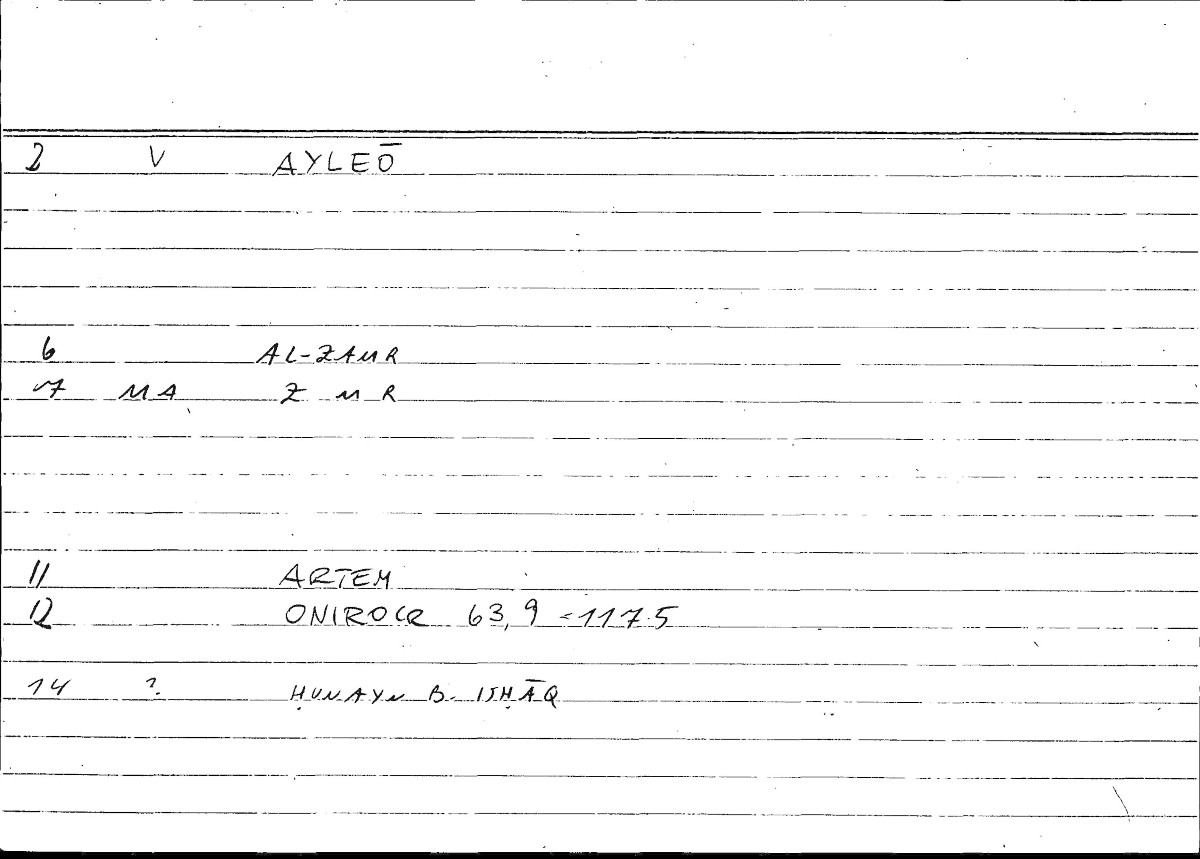 2 V AYLEŌ
6 AL-ZAMR
7 MA Z M R
11 ARTEM
12 ONIROCR 63,9 = 117.5
14 ? ḤUNAYN B. ISḤĀQ